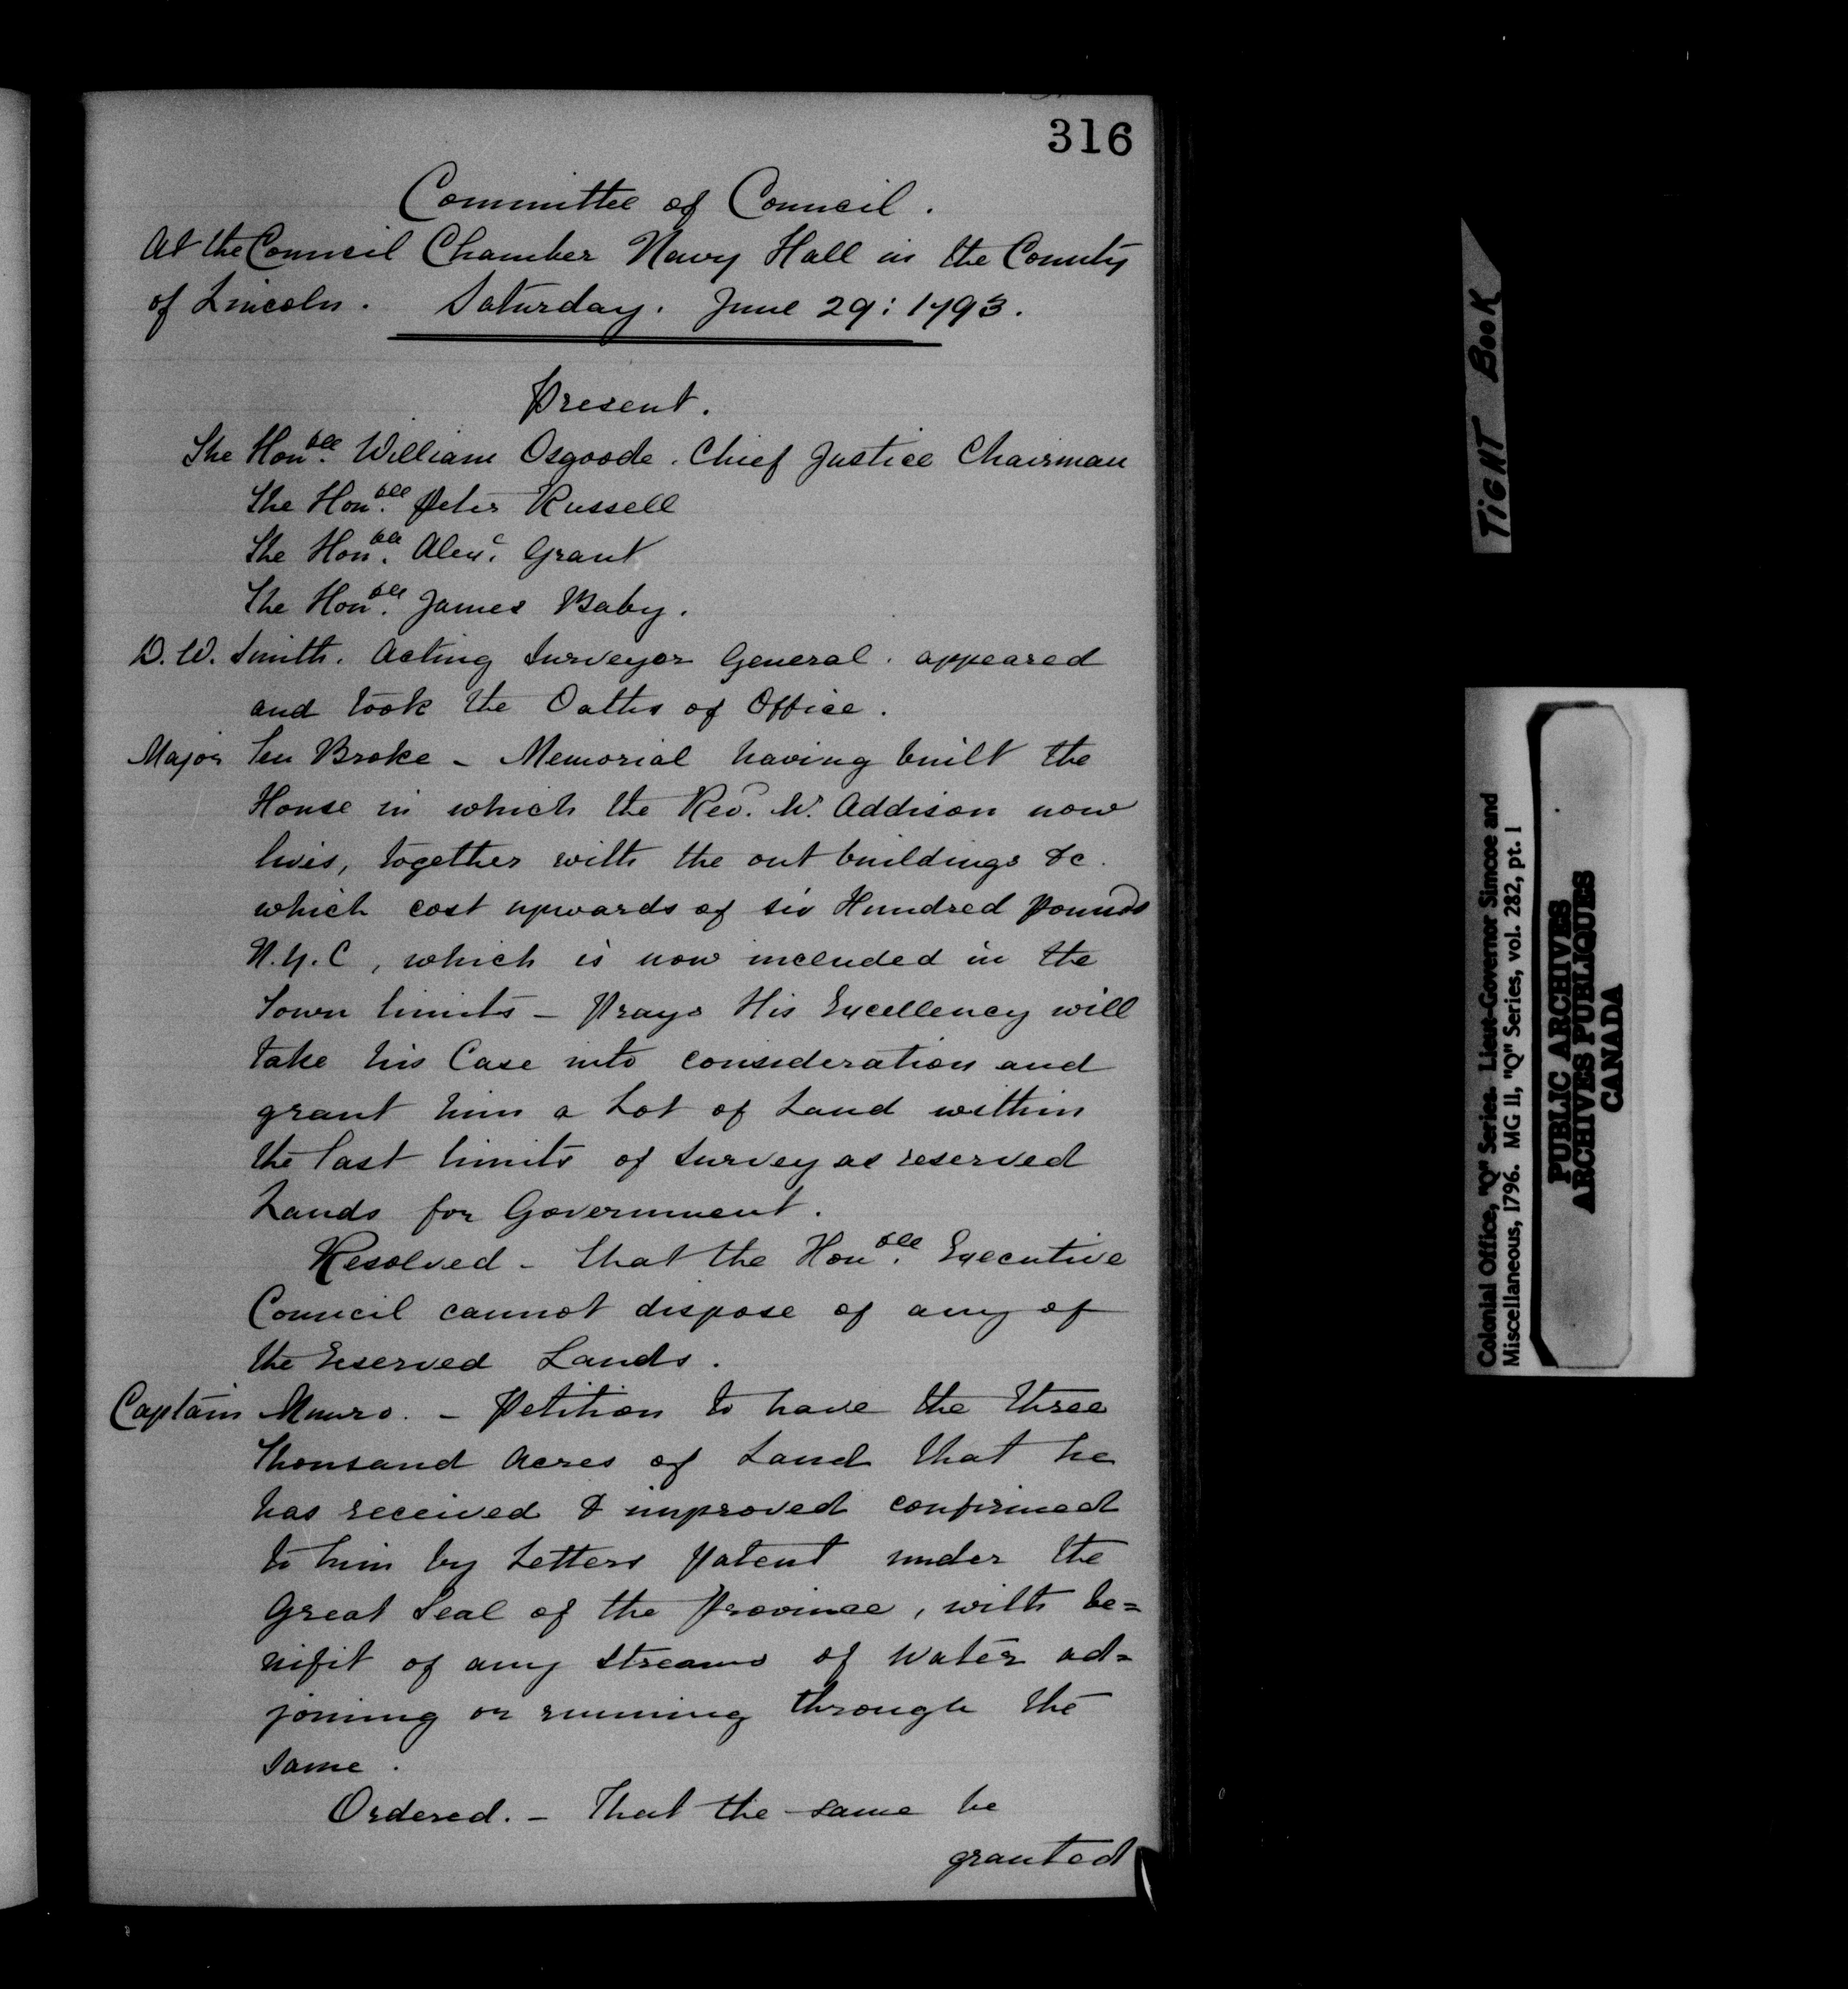 316
Committee of Council.
At the Council Chamber Navy Hall in the County
of Lincoln. Saturday. June 29: 1793.
Present.
The Honble. William Osgoode. Chief Justice Chairman
The Honble. Peter Russell
The Honble. Alexr. Grant
The Honble. James Baby.
D. W. Smith. Acting Surveyor General. appeared
and took the Oaths of Office.
Major Ten Broke - Memorial having built the
House in which the Rev. Mr. Addison now
lives, together with the out buildings &c.
which cost upwards of six Hundred pounds
N.Y.C, which is now included in the
Town limits - Prays His Excellency will
take his Case into consideration and
grant him a Lot of Land within
the last limits of Survey as reserved
Lands for Government.
Resolved - That the Honble. Executive
Council cannot dispose of any of
the reserved Lands.
Captain Munro. - Petition to have the three
Thousand Acres of Land that he
has received & improved confirmed
to him by Letters patent under the
Great Seal of the Province, with be=
nifit of any Streams of Water ad=
joining or running through the
Same.
Ordered. - That the same be
granted
TiGHT BooK
Colonial Office, "Q" Series. Lieut-Governor Simcoe and
Miscellaneous, 1796. MG 11, "Q" Series, vol. 282, pt. 1
PUBLIC ARCHIVES
ARCHIVES PUBLIQUES
CANADA